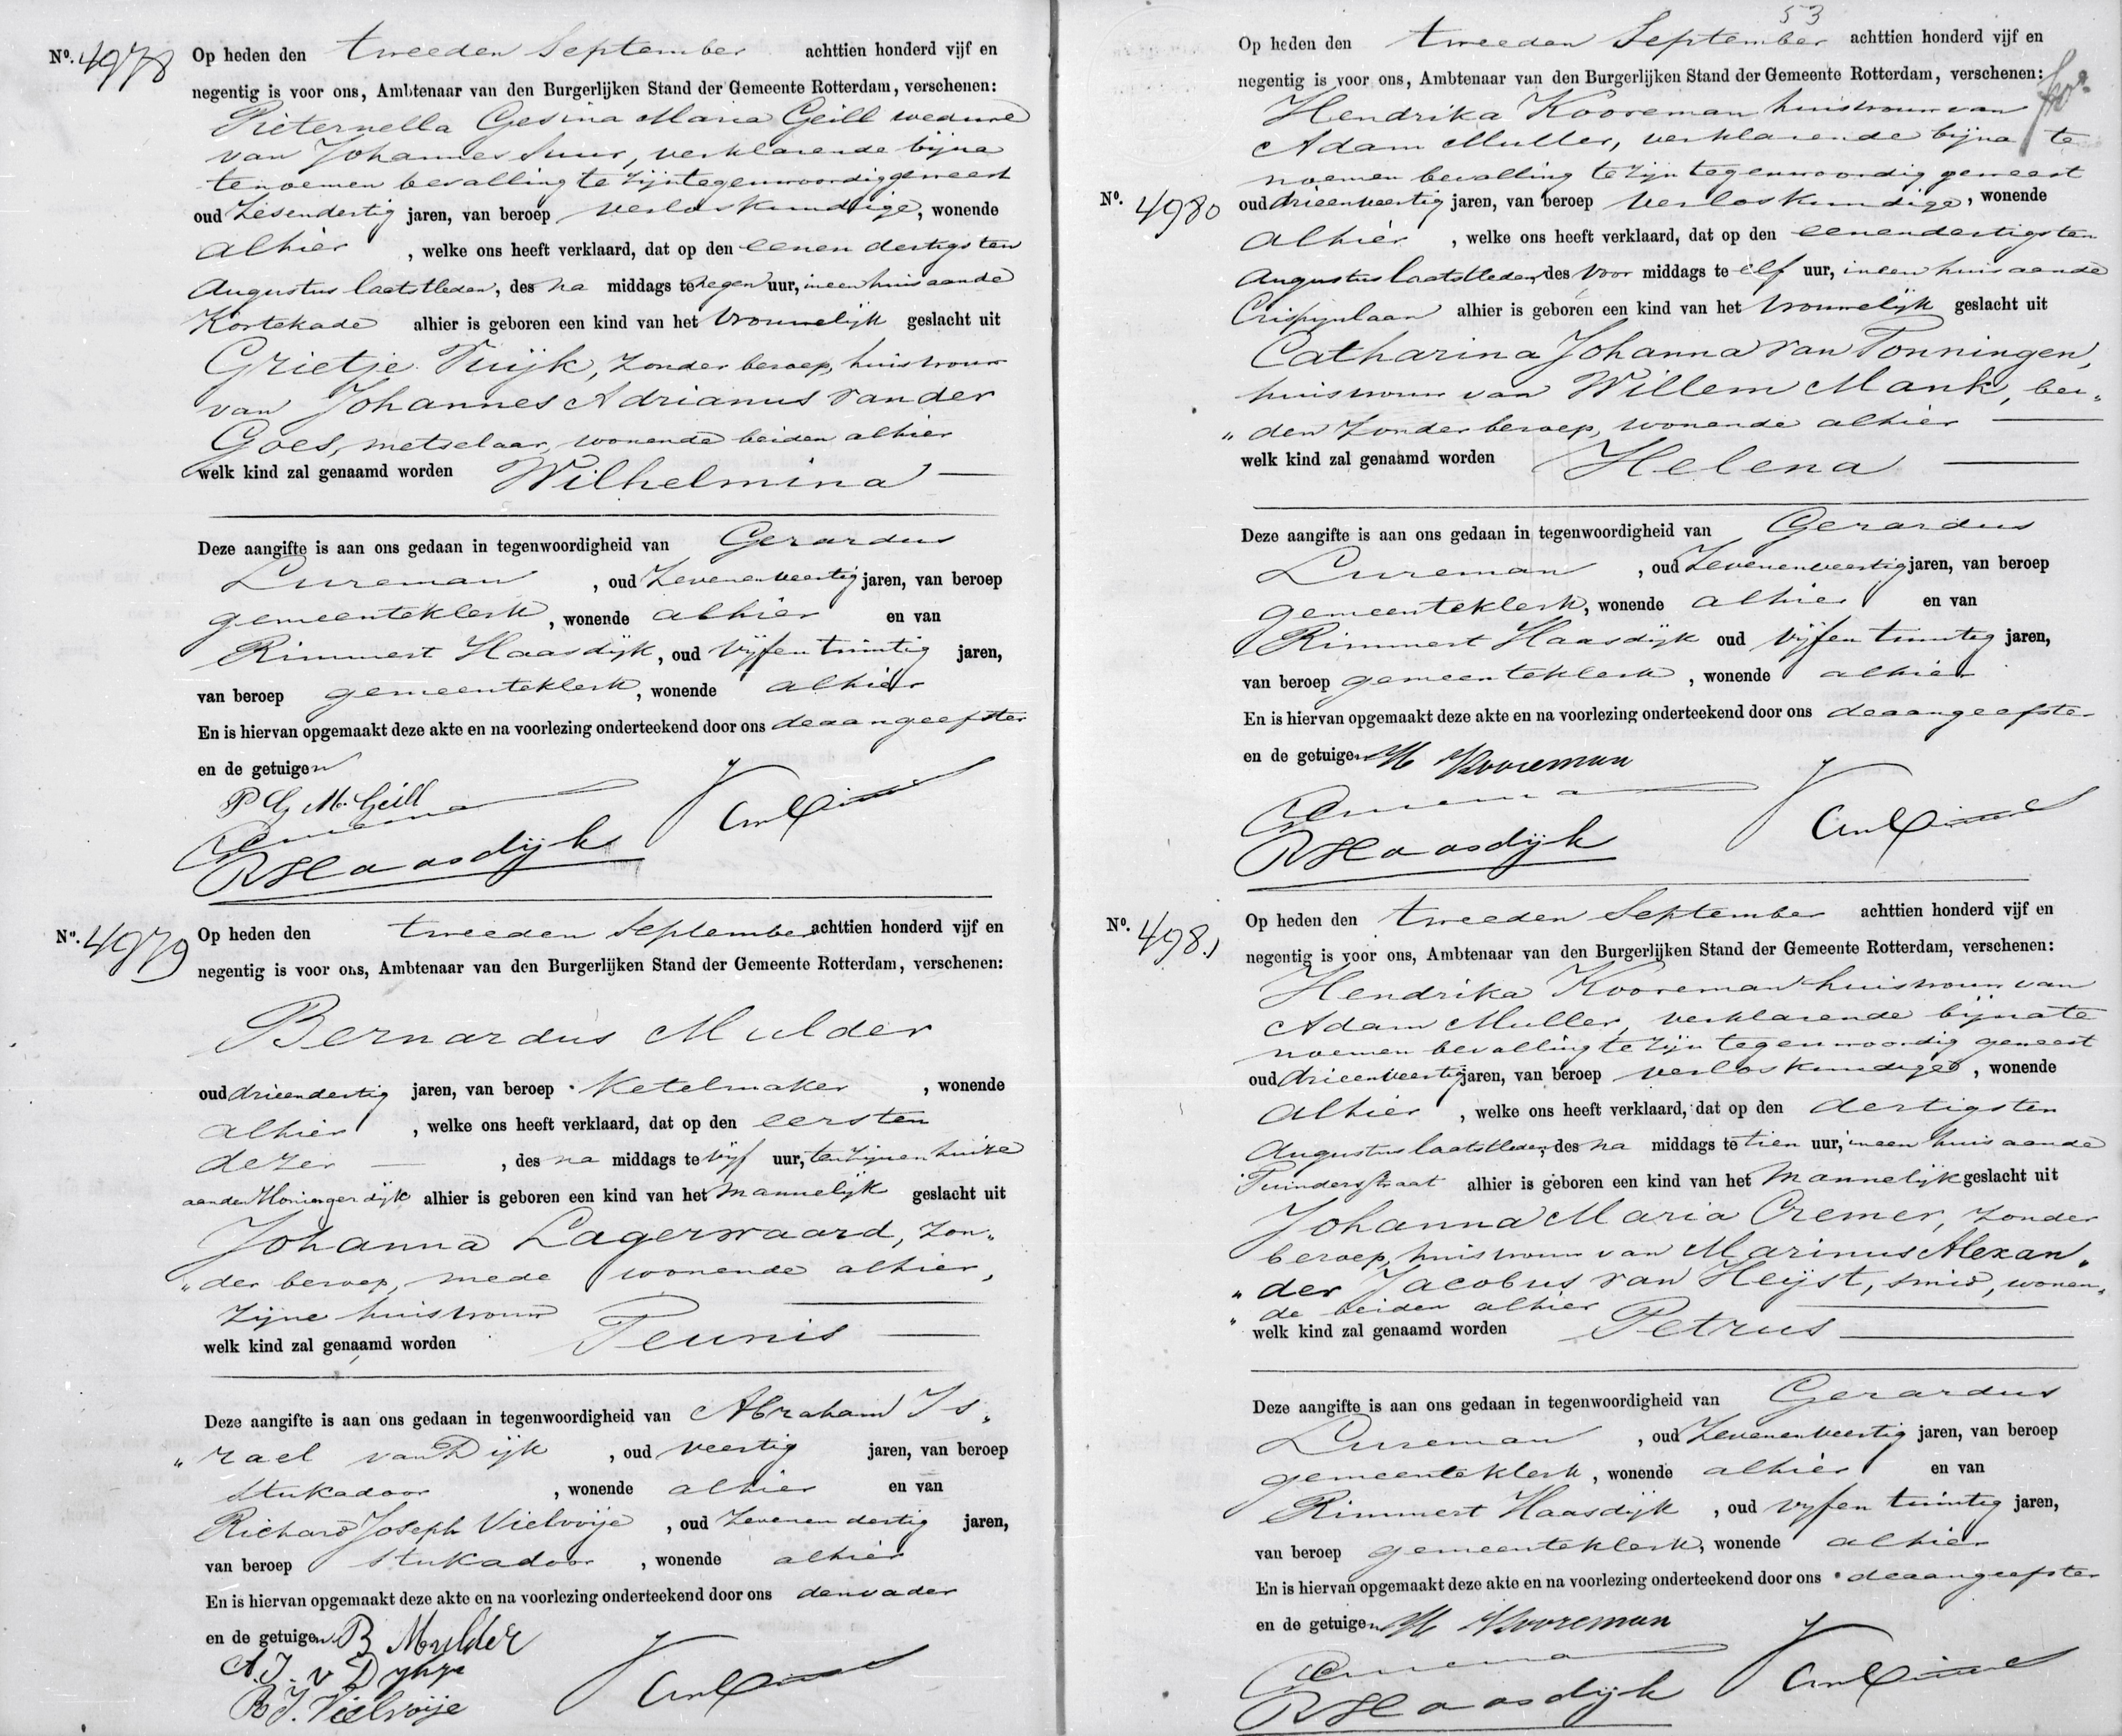 No. 4978 Op heden den tweeden September achttien honderd vijf en
negentig is voor ons, Ambtenaar van den Burgerlijken Stand der Gemeente Rotterdam, verschenen:
Pieternella Gesina Maria Geill weduwe
van Johannes Suur, verklarende bijna
tenoemen bevalling te zijn tegenwoordig geweest
oud Zesendertig jaren, van beroep verloskundige, wonende
alhier, welke ons heeft verklaard, dat op den eenen dertigsten
Augustus laatstleden, des na middags te negen uur, in een huis aan de
Kortekade alhier is geboren een kind van het vrouwelijk geslacht uit
Grietje Kuijk, zonder beroep, huisvrouw
van Johannes Adrianus van der
Goes, metselaar, wonende beiden alhier
welk kind zal genaamd worden Wilhelmina
Deze aangifte is aan ons gedaan in tegenwoordigheid van Gerardus
Lureman, oud Zevenenveertig jaren, van beroep
gemeenteklerk, wonende alhier en van
Rimmert Haasdijk, oud vijfentwintig jaren,
van beroep gemeenteklerk, wonende alhier
En is hiervan opgemaakt deze akte en na voorlezing onderteekend door ons de aangeefster
en de getuigen
P G M. Geill
R Haasdijk
No. 4979 Op heden den tweeden September achttien honderd vijf en
negentig is voor ons, Ambtenaar van den Burgerlijken Stand der Gemeente Rotterdam, verschenen:
Bernardus Mulder
oud drieendertig jaren, van beroep Ketelmaker, wonende
alhier, welke ons heeft verklaard, dat op den eersten
dezer, des na middags te vijf uur, ten zijnen huize
aan den Honingerdijk alhier is geboren een kind van het mannelijk geslacht uit
Johanna Lagerwaard, zon„
„der beroep, mede wonende alhier,
zijne huisvrouw
welk kind zal genaamd worden Teunis
Deze aangifte is aan ons gedaan in tegenwoordigheid van Abraham Is„
„rael van Dijk, oud veertig jaren, van beroep
stukadoor, wonende alhier en van
Richard Joseph Vielvoije, oud Zevenendertig jaren,
van beroep stukadoor, wonende alhier
En is hiervan opgemaakt deze akte en na voorlezing onderteekend door ons den vader
en de getuigen B Mulder
A. I. v Dijk
R J. Vielvoije
53
Op heden den tweeden September achttien honderd vijf en
negentig is voor ons, Ambtenaar van den Burgerlijken Stand der Gemeente Rotterdam, verschenen:
Hendrika Kooreman huisvrouw van
Adam Muller, verklarende bijna te
noemen bevalling te zijn tegenwoordig geweest
No. 4980 oud drieenveertig jaren, van beroep verloskundige, wonende
alhier, welke ons heeft verklaard, dat op den eenendertigsten
Augustus laatstleden, des voor middags te elf uur, in een huis aan de
Crispijnlaan alhier is geboren een kind van het vrouwelijk geslacht uit
Catharina Johanna van Tonningen,
huisvrouw van Willem Mank, bei„
„den zonder beroep, wonende alhier
welk kind zal genaamd worden Helena
Deze aangifte is aan ons gedaan in tegenwoordigheid van Gerardus
Lureman, oud Zevenenveertig jaren, van beroep
gemeenteklerk, wonende alhier en van
Rimmert Haasdijk oud vijfentwintig jaren,
van beroep gemeenteklerk, wonende alhier
En is hiervan opgemaakt deze akte en na voorlezing onderteekend door ons de aangeefster
en de getuigen H Kooreman
R Haasdijk
No. 4981 Op heden den tweeden September achttien honderd vijf en
negentig is voor ons, Ambtenaar van den Burgerlijken Stand der Gemeente Rotterdam, verschenen:
Hendrika Kooreman huisvrouw van
Adam Muller, verklarende bijna te
noemen bevalling te zijn tegenwoordig geweest
oud drieenveertig jaren, van beroep verloskundige, wonende
alhier, welke ons heeft verklaard, dat op den dertigsten
Augustus laatstleden, des na middags te tien uur, in een huis aan de
Tuindersstraat alhier is geboren een kind van het mannelijk geslacht uit
Johanna Maria Cremer, zonder
beroep, huisvrouw van Marinus Alexan„
„der Jacobus van Heijst, smid, wonen„
„de beiden alhier
welk kind zal genaamd worden Petrus
Deze aangifte is aan ons gedaan in tegenwoordigheid van Gerardus
Lureman, oud Zevenenveertig jaren, van beroep
gemeenteklerk, wonende alhier en van
Rimmert Haasdijk, oud vyfentwintig jaren,
van beroep gemeenteklerk, wonende alhier
En is hiervan opgemaakt deze akte en na voorlezing onderteekend door ons de aangeefster
en de getuigen H Kooreman
R Haasdijk